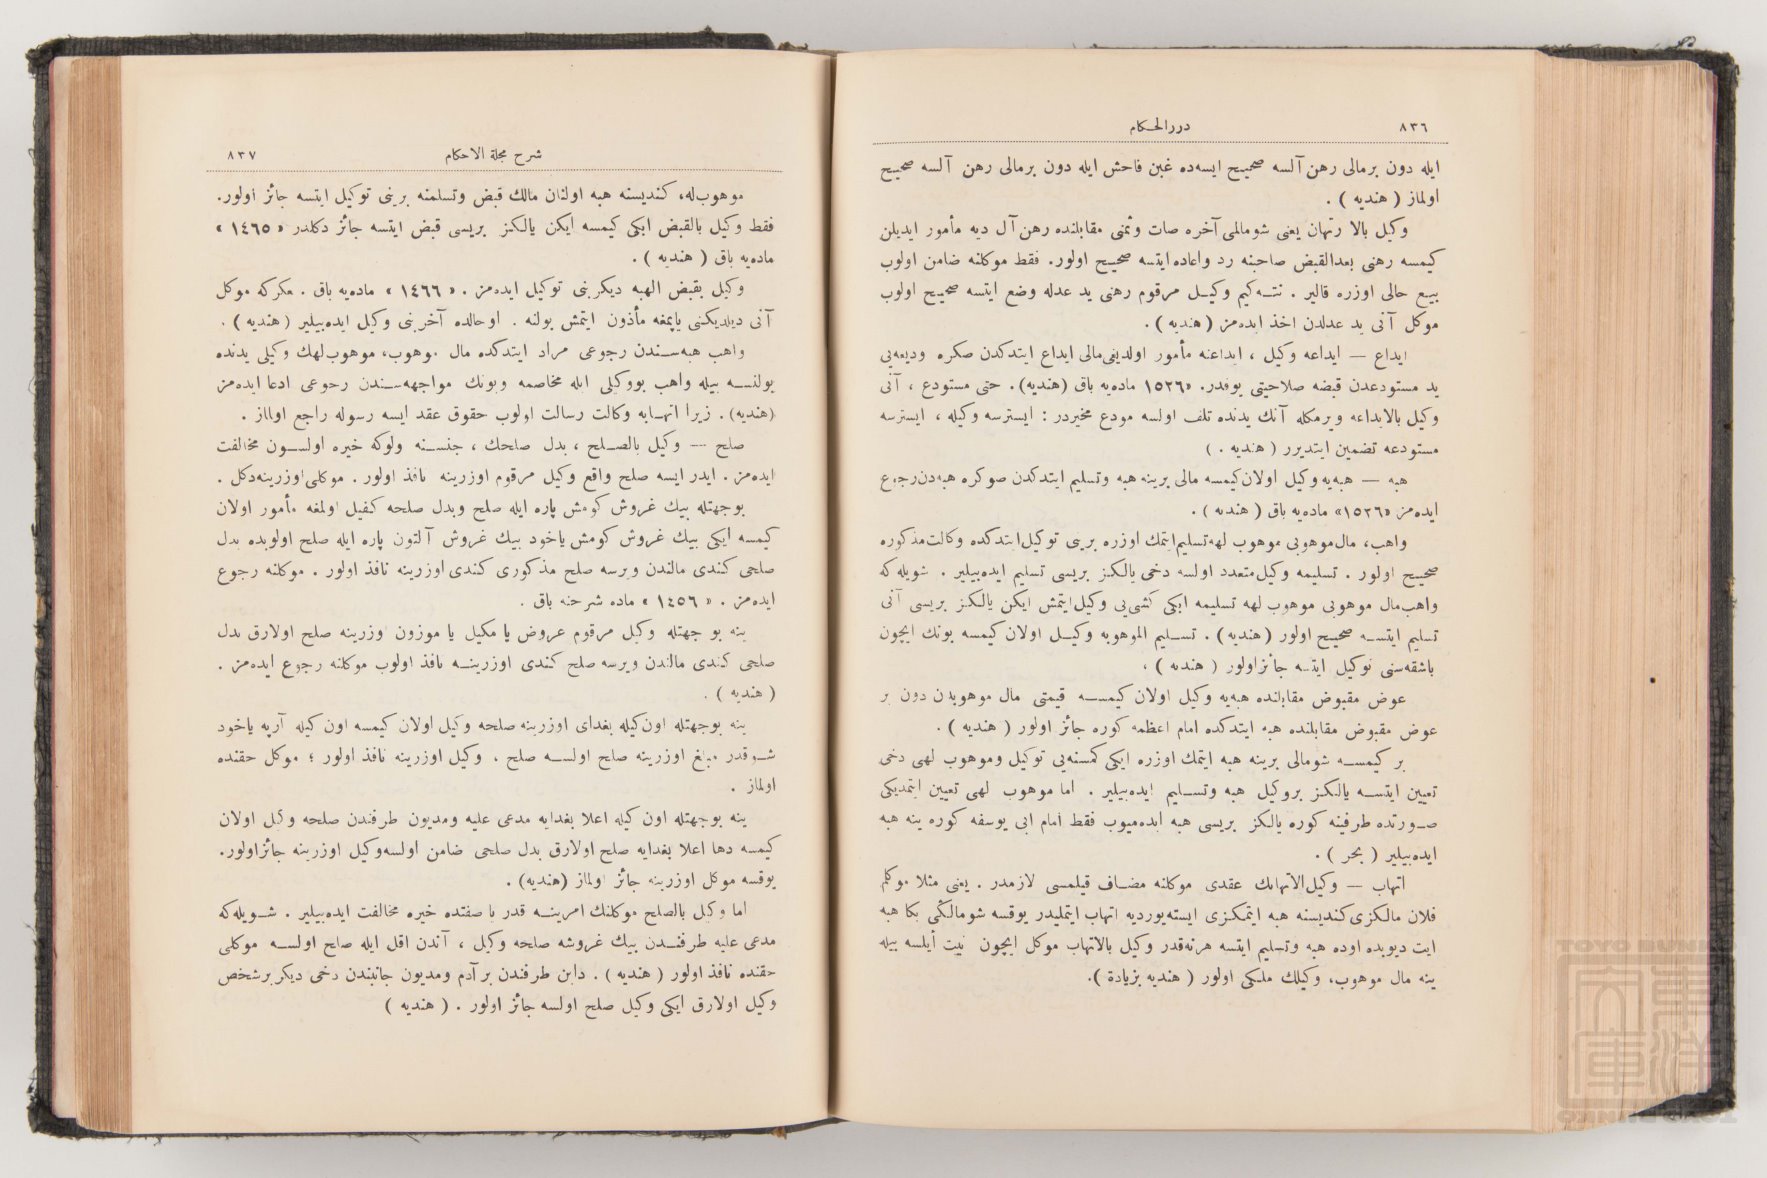 ٨٣٦
دررالحكام
ايله دون برمالى رهن آلسه صحيح ايسه‌ده غبن فاحش ايله دون برمالى رهن آلسه صحيح
اولماز ( هنديه ) .
وكيل بالا رتهان يعنى شومالمى آخره صات وثمنى مقابلنده رهن آل ديه مأمور ايديلن
كيمسه رهنى بعدالقبض صاحبنه رد واعاده ايتسه صحيح اولور. فقط موكلنه ضامن اولوب
بيع حالى اوزره قالير . نته‌كيم وكيل مرقوم رهنى يد عدله وضع ايتسه صحيح اولوب
موكل آنى يد عدلدن اخذ ايده‌مز ( هنديه ) .
ايداع — ايداعه وكيل ، ايداعنه مأمور اولديغى‌مالى ايداع ايتدكدن صكره وديعه‌يى
يد مستودعدن قبضه صلاحيتى يوقدر. «١٥٢٦ ماده‌يه باق (هنديه). حتى مستودع ، آنى
وكيل بالايداعه ويرمكله آنك يدنده تلف اولسه مودع مخيردر : ايسترسه وكيله ، ايسترسه
مستودعه تضمين ايتديرر ( هنديه . )
هبه — هبه‌يه وكيل اولان كيمسه مالى برينه هبه وتسليم ايتدكدن صوكره هبه‌دن رجوع
ايده‌مز «١٥٢٦» ماده‌يه باق ( هنديه ) .
واهب، مال‌موهوبى موهوب لهه تسليم‌ايتمك اوزره برينى توكيل‌ايتدكده وكالت‌مذكوره
صحيح اولور . تسليمه وكيل‌متعدد اولسه دخى يالكز بريسى تسليم ايده‌بيلير . شويله‌كه
واهب‌مال موهوبى موهوب لهه تسليمه ايكى كشى‌يى وكيل‌ايتمش ايكن يالكز بريسى آنى
تسليم ايتسه صحيح اولور (هنديه) . تسليم الموهوبه وكيل اولان كيمسه بونك ايچون
باشقه‌سنى توكيل ايتسه جائزاولور ( هنديه ) .
عوض مقبوض مقابلنده هبه‌يه وكيل اولان كيمسه قيمتى مال موهوبدن دون بر
عوض مقبوض مقابلنده هبه ايتدكده امام اعظمه كوره جائز اولور ( هنديه ) .
بر كيمسه شومالى برينه هبه ايتمك اوزره ايكى كمسنه‌يى توكيل وموهوب لهى دخى
تعيين ايتسه يالكز بروكيل هبه وتسليم ايده‌بيلير . اما موهوب لهى تعيين ايتمديكى
صورتده طرفينه كوره يالكز بريسى هبه ايده‌ميوب فقط امام ابى يوسفه كوره ينه هبه
ايده‌بيلير ( بحر ) .
اتهاب — وكيل‌الاتهابك عقدى موكلنه مضاف قيلمسى لازمدر . يعنى مثلا موكلم
فلان مالكزى كنديسنه هبه ايتمكزى ايسته‌يورديه اتهاب ايتمليدر يوقسه شومالكى بكا هبه
ايت ديوبده اوده هبه وتسليم ايتسه هرنه‌قدر وكيل بالاتهاب موكل ايچون نيت ايلسه بيله
ينه مال موهوب، وكيلك ملكى اولور ( هنديه بزيادة ).
شرح مجلة الاحكام
٨٣٧
موهوب‌له، كنديسنه هبه اولنان مالك قبض وتسلمنه برينى توكيل ايتسه جائز اولور.
فقط وكيل بالقبض ايكى كيمسه ايكن يالكز بريسى قبض ايتسه جائز دكلدر « ١٤٦٥ »
ماده‌يه باق ( هنديه ) .
وكيل بقبض الهبه ديكرينى توكيل ايده‌مز . « ١٤٦٦ » ماده‌يه باق . مكركه موكل
آنى ديلديكنى ياپمغه مأذون ايتمش بولنه . اوحالده آخرينى وكيل ايده‌بيلير (هنديه ) .
واهب هبه‌سندن رجوعى مراد ايتدكده مال موهوب، موهوب‌لهك وكيلى يدنده
بولنسه بيله واهب بووكيلى ايله مخاصمه وبونك مواجهه‌سندن رجوعى ادعا ايده‌مز
(هنديه) . زيرا اتهابه وكالت رسالت اولوب حقوق عقد ايسه رسوله راجع اولماز .
صلح — وكيل بالصلح ، بدل صلحك ، جنسنه ولوكه خيره اولسون مخالفت
ايده‌مز . ايدر ايسه صلح واقع وكيل مرقوم اوزرينه نافذ اولور . موكلى‌اوزرينه‌دكل .
بوجهتله بيك غروش كومش پاره ايله صلح وبدل صلحه كفيل اولمغه مأمور اولان
كيمسه ايكى بيك غروش كومش ياخود بيك غروش آلتون پاره ايله صلح اولوبده بدل
صلحى كندى مالندن ويرسه صلح مذكورى كندى اوزرينه نافذ اولور . موكلنه رجوع
ايده‌مز . « ١٤٥٦ » ماده شرحنه باق .
ينه بو جهتله وكيل مرقوم عروض يا مكيل يا موزون اوزرينه صلح اولارق بدل
صلحى كندى مالندن ويرسه صلح كندى اوزرينه نافذ اولوب موكلنه رجوع ايده‌مز .
( هنديه ) .
ينه بوجهتله اون‌كيله بغداى اوزرينه صلحه وكيل اولان كيمسه اون كيله آرپه ياخود
شوقدر مبلغ اوزرينه صلح اولسه صلح . وكيل اوزرينه نافذ اولور ؛ موكل حقنده
اولماز .
ينه بوجهتله اون كيله اعلا بغدايه مدعى عليه ومديون طرفندن صلحه وكيل اولان
كيمسه دها اعلا بغدايه صلح اولارق بدل صلحى ضامن اولسه‌وكيل اوزرينه جائزاولور.
يوقسه موكل اوزرينه جائز اولماز (هنديه) .
اما وكيل بالصلح موكلنك امرينه قدر يا صفتده خيره مخالفت ايده‌بيلير . شويله‌كه
مدعى عليه طرفندن بيك غروشه صلحه وكيل ، آندن اقل ايله صلح اولسه موكلى
حقنده نافذ اولور ( هنديه ) . داين طرفندن بر آدم ومديون جانبندن دخى ديكر برشخص
وكيل اولارق ايكى وكيل صلح اولسه جائز اولور . ( هنديه )